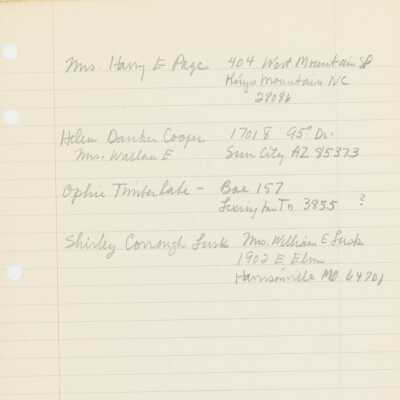 Mrs. Harry E Page 404 West Mountain St
Kings Mountain NC
28086
Helen Danker Cooper 17018 95° Dr.
Mrs. Wallace E Sun City AZ 85373
Ophie Timberlake - Box 157
Lexington Tn 3855 ?
Shirley Lusk Mrs. William E Lusk
1902 E Elm
Harrisonville MO 64701